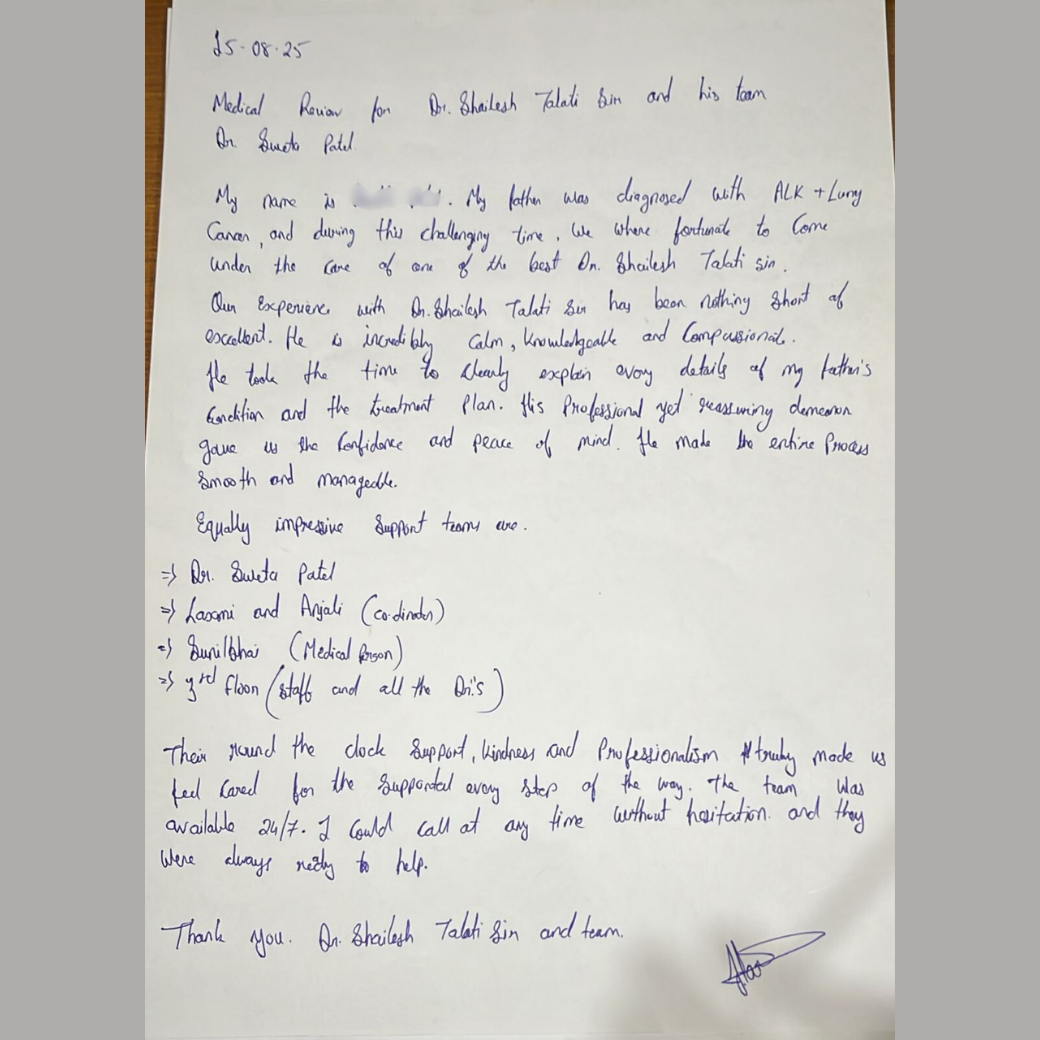 15-08-25
Medical Review for Dr. Shailesh Talati Sir and his team
Dr. Sweta Patel.
My name is . My father was diagnosed with ALK + Lung
Cancer, and during this challenging time, we where fortunate to Come
under the care of one of the best Dr. Shailesh Talati sir.
Our Experience with Dr. Shailesh Talati Sir has been nothing short of
excellent. He is incredibly Calm, knowledgeable and Compassionate.
He took the time to clearly explain every details of my father's
Condition and the treatment Plan. His Professional yet reassuring demeanor
gave us the Confidence and peace of mind. He made the entire Process
Smooth and manageable.
Equally impressive Support teams are.
=> Dr. Sweta Patel
=> Laxmi and Anjali (Co-dinator)
=> Sunilbhai (Medical Person)
=> 3rd Floor (Staff and all the Dr.'s)
Their round the clock Support, kindness and Professionalism truly made us
feel cared for the Supported every step of the way. The team Was
available 24/7. I Could call at any time without hesitation. and they
Were always ready to help.
Thank you. Dr. Shailesh Talati Sir and team.